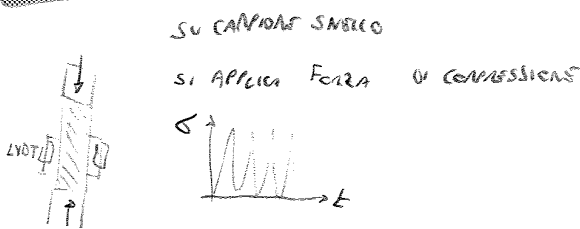 SU CAMPIONE SNELLO
SI APPLICA FORZA DI COMPRESSIONE
LVDT
σ
t